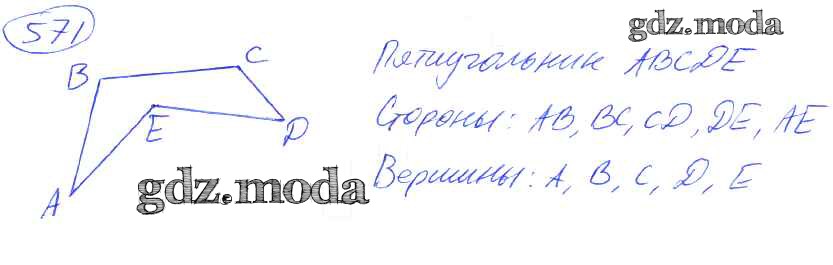 571
gdz.moda
B
C
Пятиугольник ABCDE
E
D
Стороны: AB, BC, CD, DE, AE
A
gdz.moda
Вершины: A, B, C, D, E